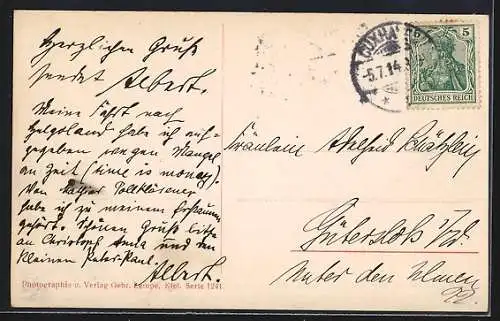 Herzlichen Gruß
sendet Albert.
Meine Fahrt nach
Helgoland habe ich auf-
gegeben wegen Mangel
an Zeit (time is money).
Von
habe ich zu meinem Erstaunen
gehört. Schönen Gruß bitte
an Christoph Anna und den
kleinen Peter-Paul.
Albert.
Photographie u. Verlag Gebr. Lempe, Kiel. Serie 1241
CUXHAVEN
-5.7.14
5
DEUTSCHES REICH
Fräulein Adelheid
Gütersloh i/W.
Unter den Ulmen